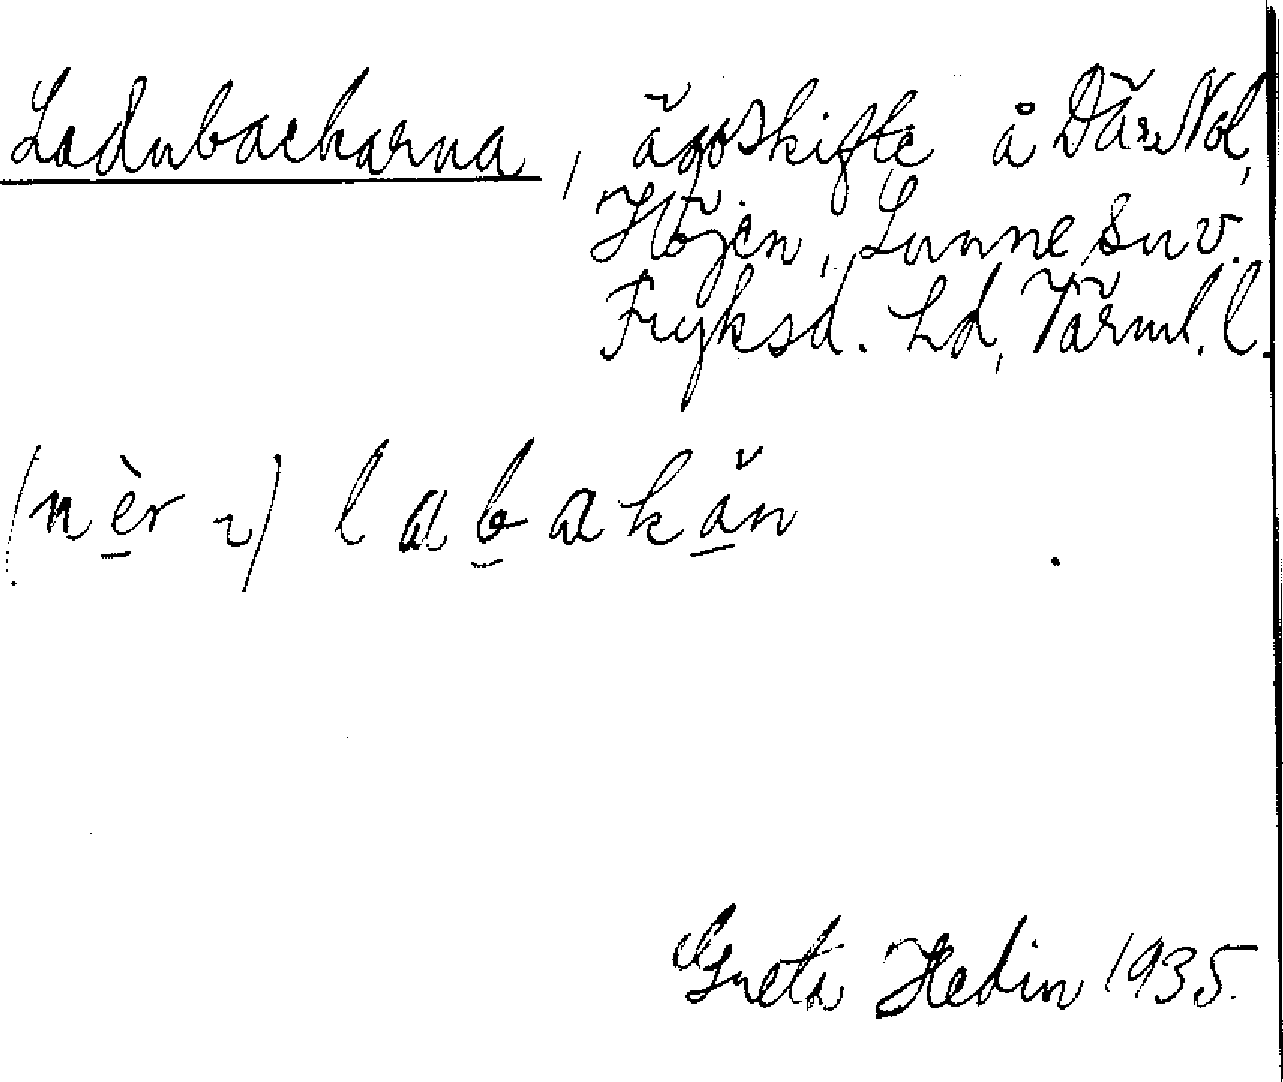 Ladubackarna, ägoskifte å Där Nol,
Höjen, Sunne sn v.
Fryksd. hd, Värml. l.
(nèr i) labakăn
Greta Hedin 1935.